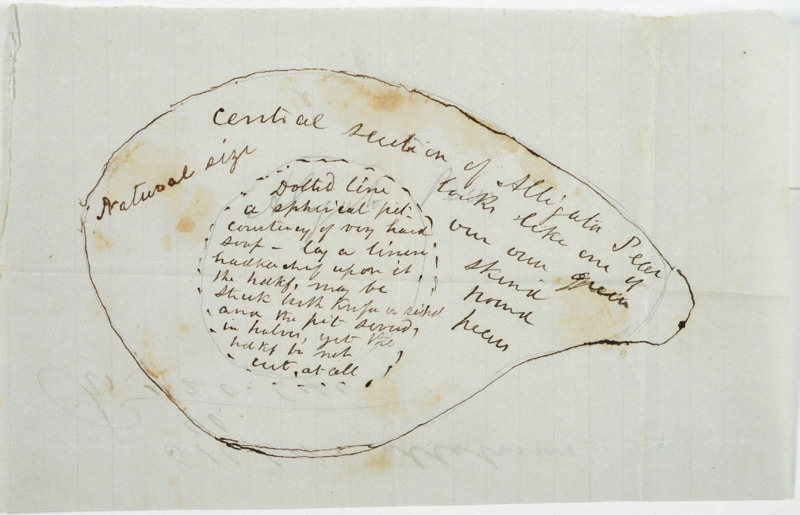 Central section of Alligator Pear
Natural size
looks like one of
our own green
skin'd
round
pears
Dotted line
a spherical pit
consistency of very hard
soap - lay a linen
handkerchief upon it,
the hdkf, may be
struck with knife or
and the pit
in halves, yet the
hdkf be not
cut, at all